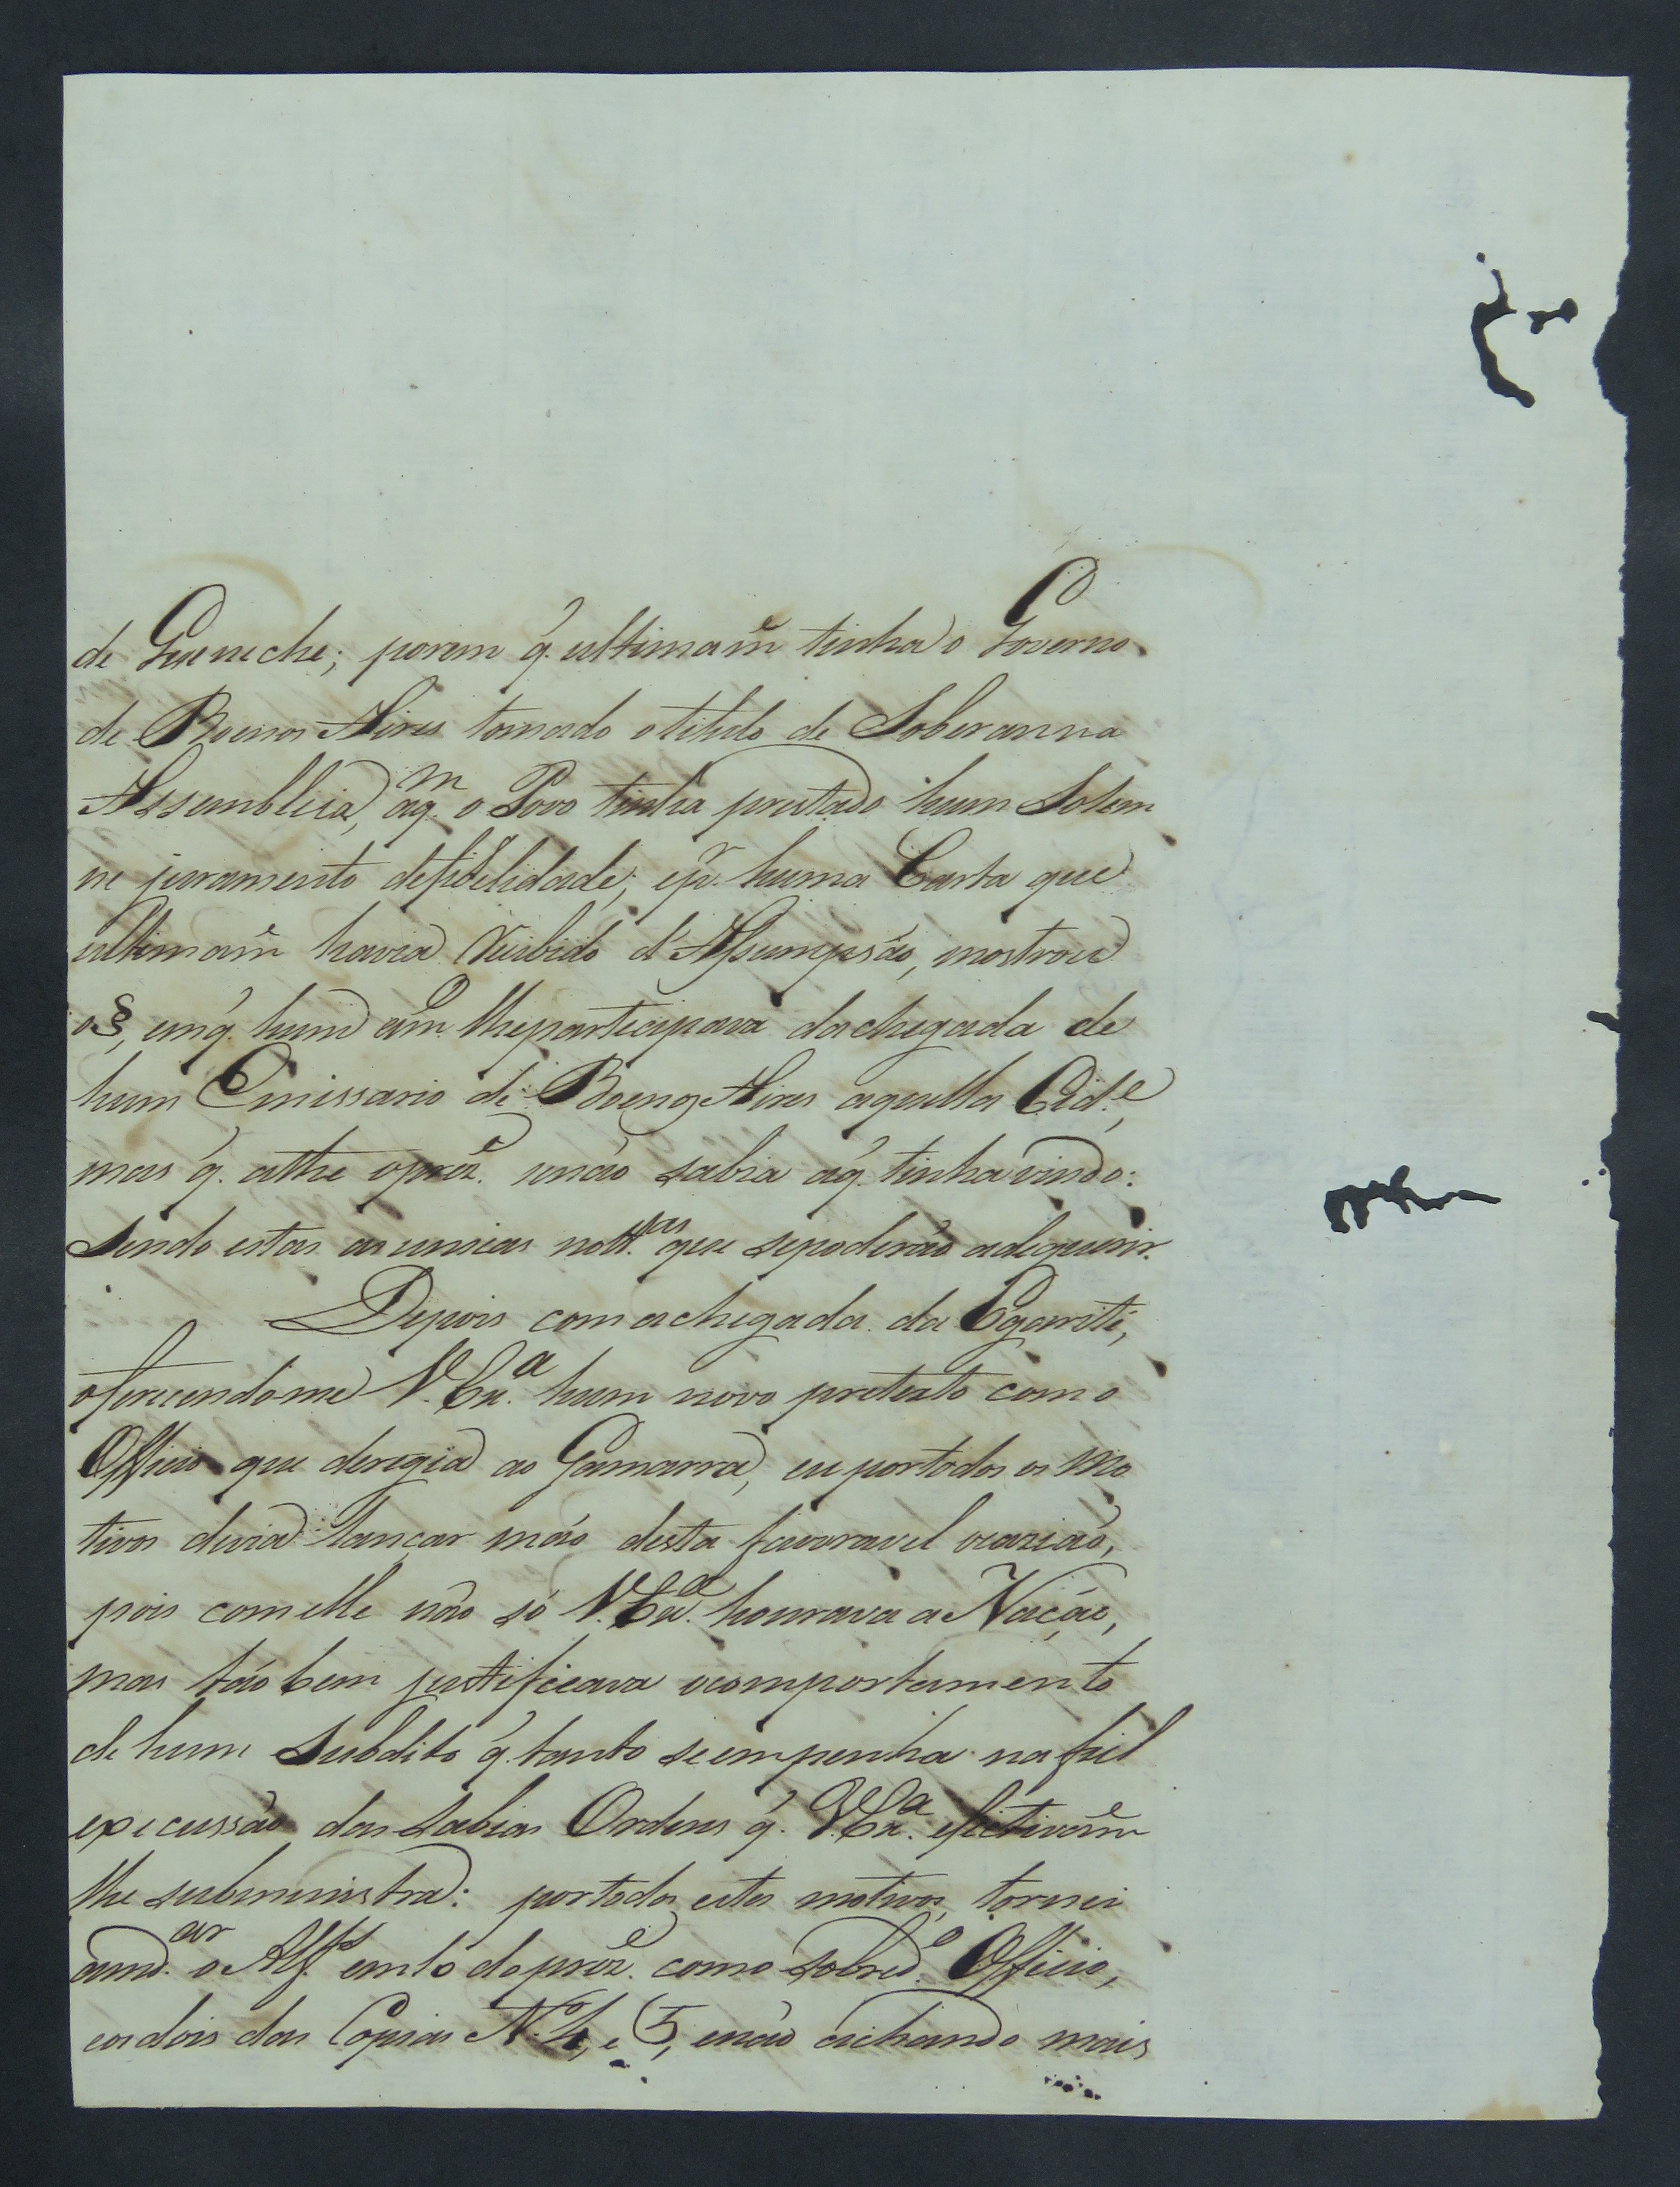 de Gueneche; porem q̃. ultimam.e tinha o Governo
de Boenos Aires tomado otitulo de Soberanna
Assembleia, aq.m o Povo tinha prestado hum Solem
ne juramento defidelidade; ep.r huma Carta que
ultimam.e havia recibido d'Assumpsão, mostrou
o §, emq̃. hum am.o lheparticipava dachegada de
hum Emissario de Boenos Aires aquella Cid.e,
mas q̃. athe oprez.e senão sabia aq̃. tinha vindo:
Sendo estas as unicas nott.as que sepoderão adequirir.
Depois com achegada da Egariti,
oferecendome V. Ex.a hum novo pretexto com o
Officio que deregia ao Gamarra, eu portodos os mo
tivos devia lançar mão desta favoravel ocazião,
pois com elle não só V. Ex.a honrava a Nação,
mas tão bem justificava ocomportamento
de hum Subdito q̃. tanto seempenha na fiel
execussão das sabias Ordens q̃. V. Ex.a efectivam.e
lhe subministra: portodos estes motivos, tornei
amd.ar o Alf.s em 16 do prez.e com o sobred.o Officio,
eos dois das Copias N.o 4, e 5, enão achando mais